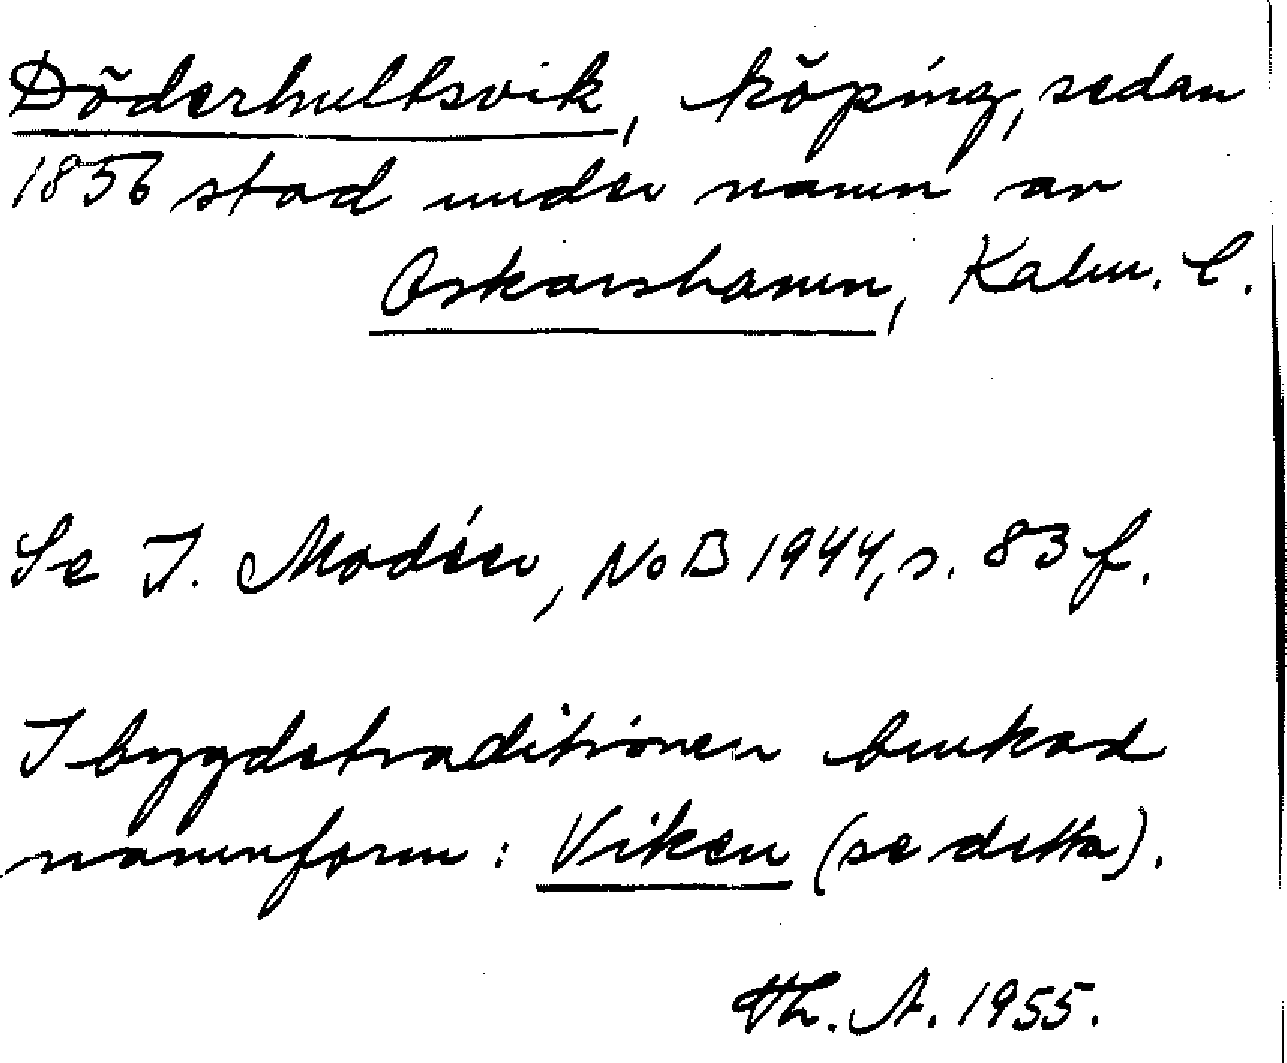 Döderhultsvik, köping, sedan
1856 stad under namn av
Oskarshamn, Kalm. l.
Se I. Modéer, NoB 1944, s. 83 f.
I bygdetraditionen brukad
namnform: Viken (se detta).
Th. A. 1955.